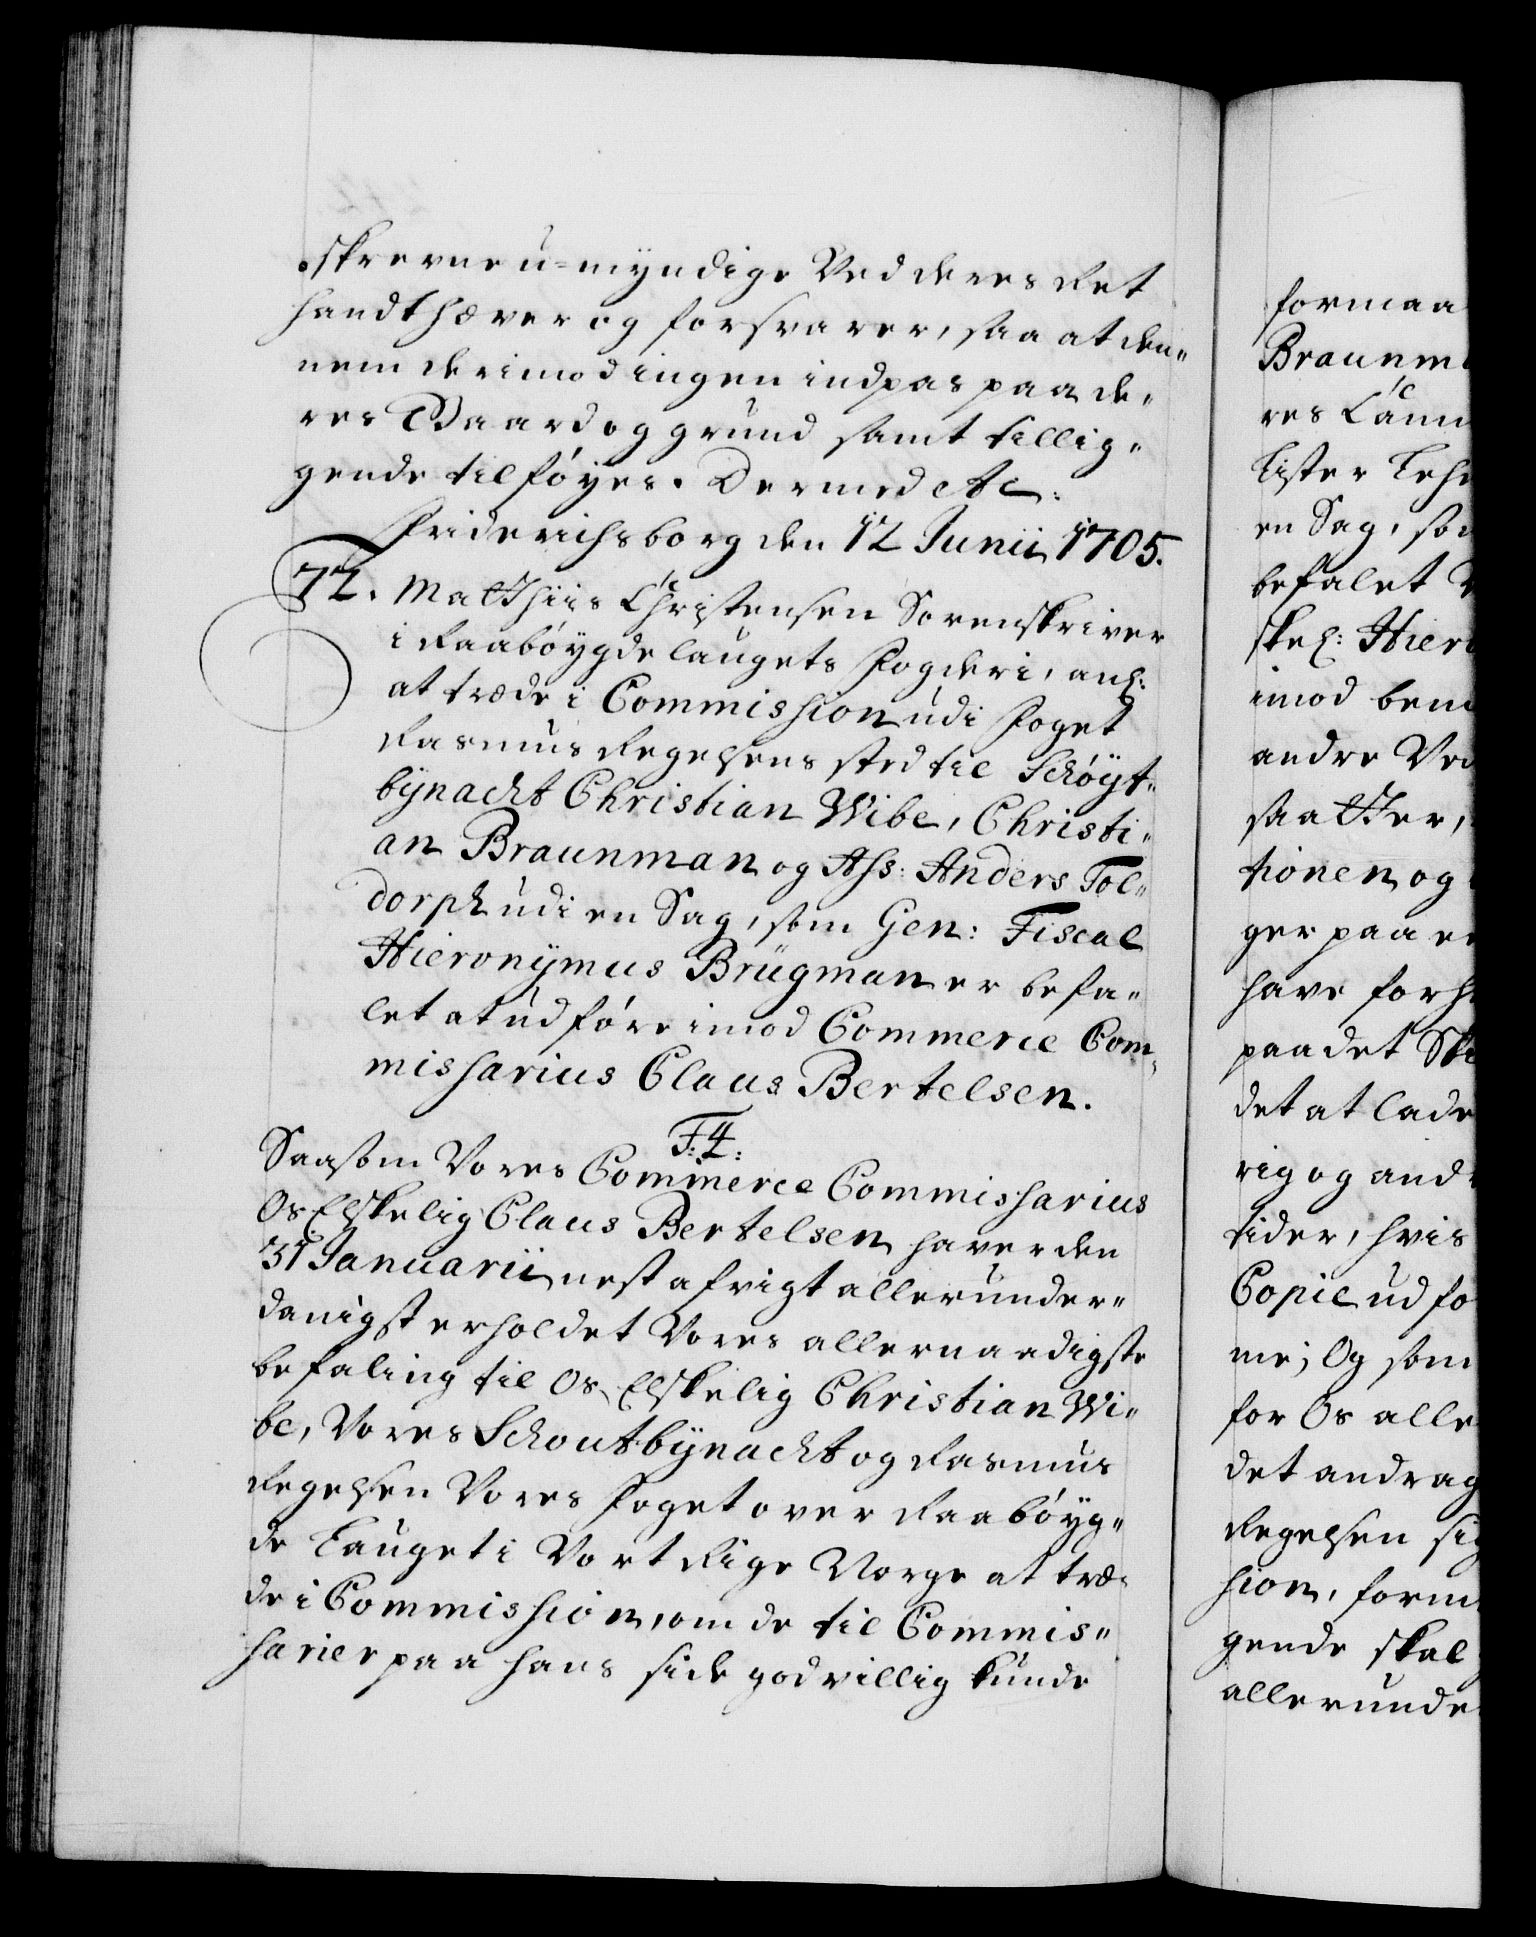 skrevne u-myndige Ved deres Ret
handthæver og forsvarer, saa at den-
nem derimod ingen indpas paa de-
res Gaard og grund samt tillig-
gende tilføyes. Dermed etc:
Friderichsborg den 12 Junii 1705.
72. Matthiis Christensen Sorenskriver
i Raabøygdelaugets Fogderi, anl:
at træde i Commission udi Foget
Rasmus Regelsens sted til Schøyt-
bynacht Christian Wibe, Christi-
an Braunman og Ass: Anders Tol-
dorph udi en Sag, som Gen: Fiscal
Hieronymus Brügman er befa-
let at udføre imod Commerce Com-
missarius Claus Bertelsen.
F: 4:
Saasom Vores Commerce Commissarius
Os Elskelig Claus Bertelsen haver den
31 Januarii nest afvigt allerunder-
danigst erholdet Vores allernaadigste
befaling til Os Elskelig Christian Wi-
be, Vores Schoutbynacht og Rasmus
Regelsen Vores Foget over Raabøyg-
de Lauget i Vort Rige Norge at træ-
de i Commission, om de til Commis-
sarier paa hans side godvillig kunde
formaa
Braunm
res
Lister Lehn
en Sag, som
befalet
skel: Hiero
imod bem
andre Ved
saatter,
tionen og
ger paa
have forh
paa det
det at lade
rig og and
tider, hvis
Copie ud fo
me; Og som
for Os alle
det andrag
Regelsen sig
sion, form
gende skal
allerunde